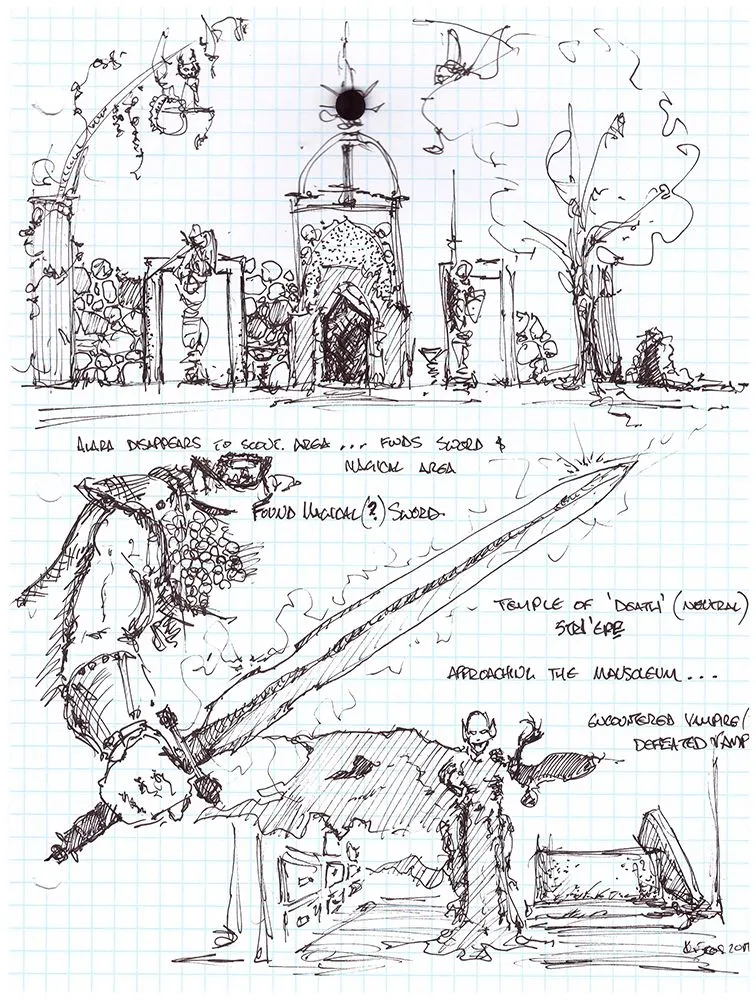 ALARA DISAPPEARS TO SCOUT AREA... FINDS SWORD &
MAGICAL AREA
FOUND MAGICAL(?) SWORD
TEMPLE OF 'DEATH' (NEUTRAL)
APPROACHING THE MAUSOLEUM...
ENCOUNTERED VAMPIRE/
DEFEATED VAMP